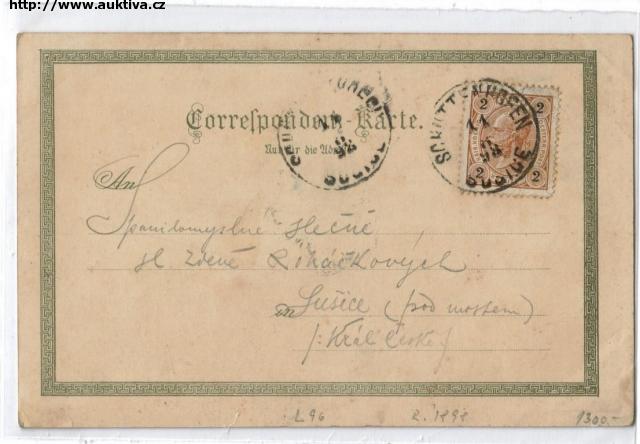 http://www.auktiva.cz
Correspondenz-Karte.
Nur für die Adresse
SCHÜTTENHOFEN
SUŠICE
2 2
2 2
SUŠICE
An
Spanilomyslné slečně
sl. Zdeně Řiháčkových
in Sušice (pod mostem)
/: Král. České
L 96
1300.-